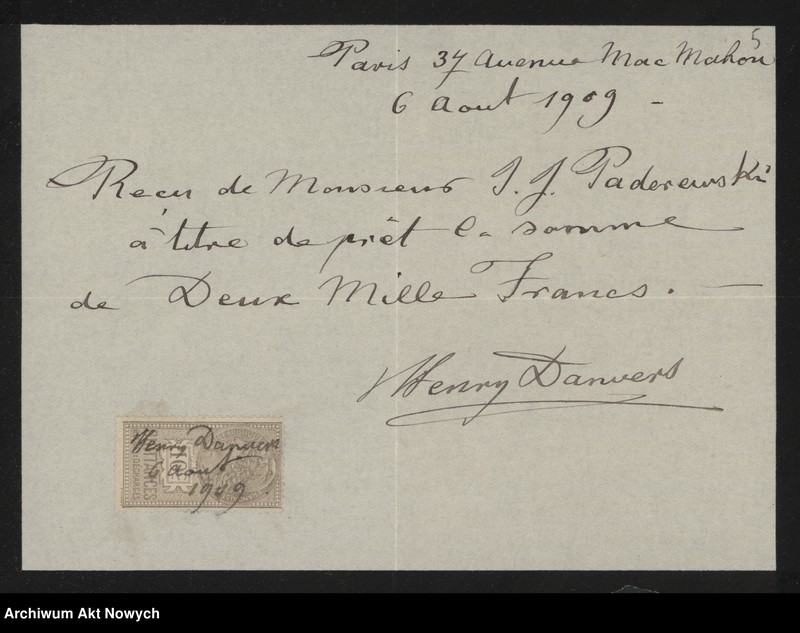 5
Paris 37 Avenue Mac Mahon
6 Aout 1909 -
Recu de Monsieur I. J. Paderewski
à titre de prêt la somme
de Deux Mille Francs. —
Henry Danvers
Henry Danvers
6 Aout
1909
QUITTANCES
Archiwum Akt Nowych